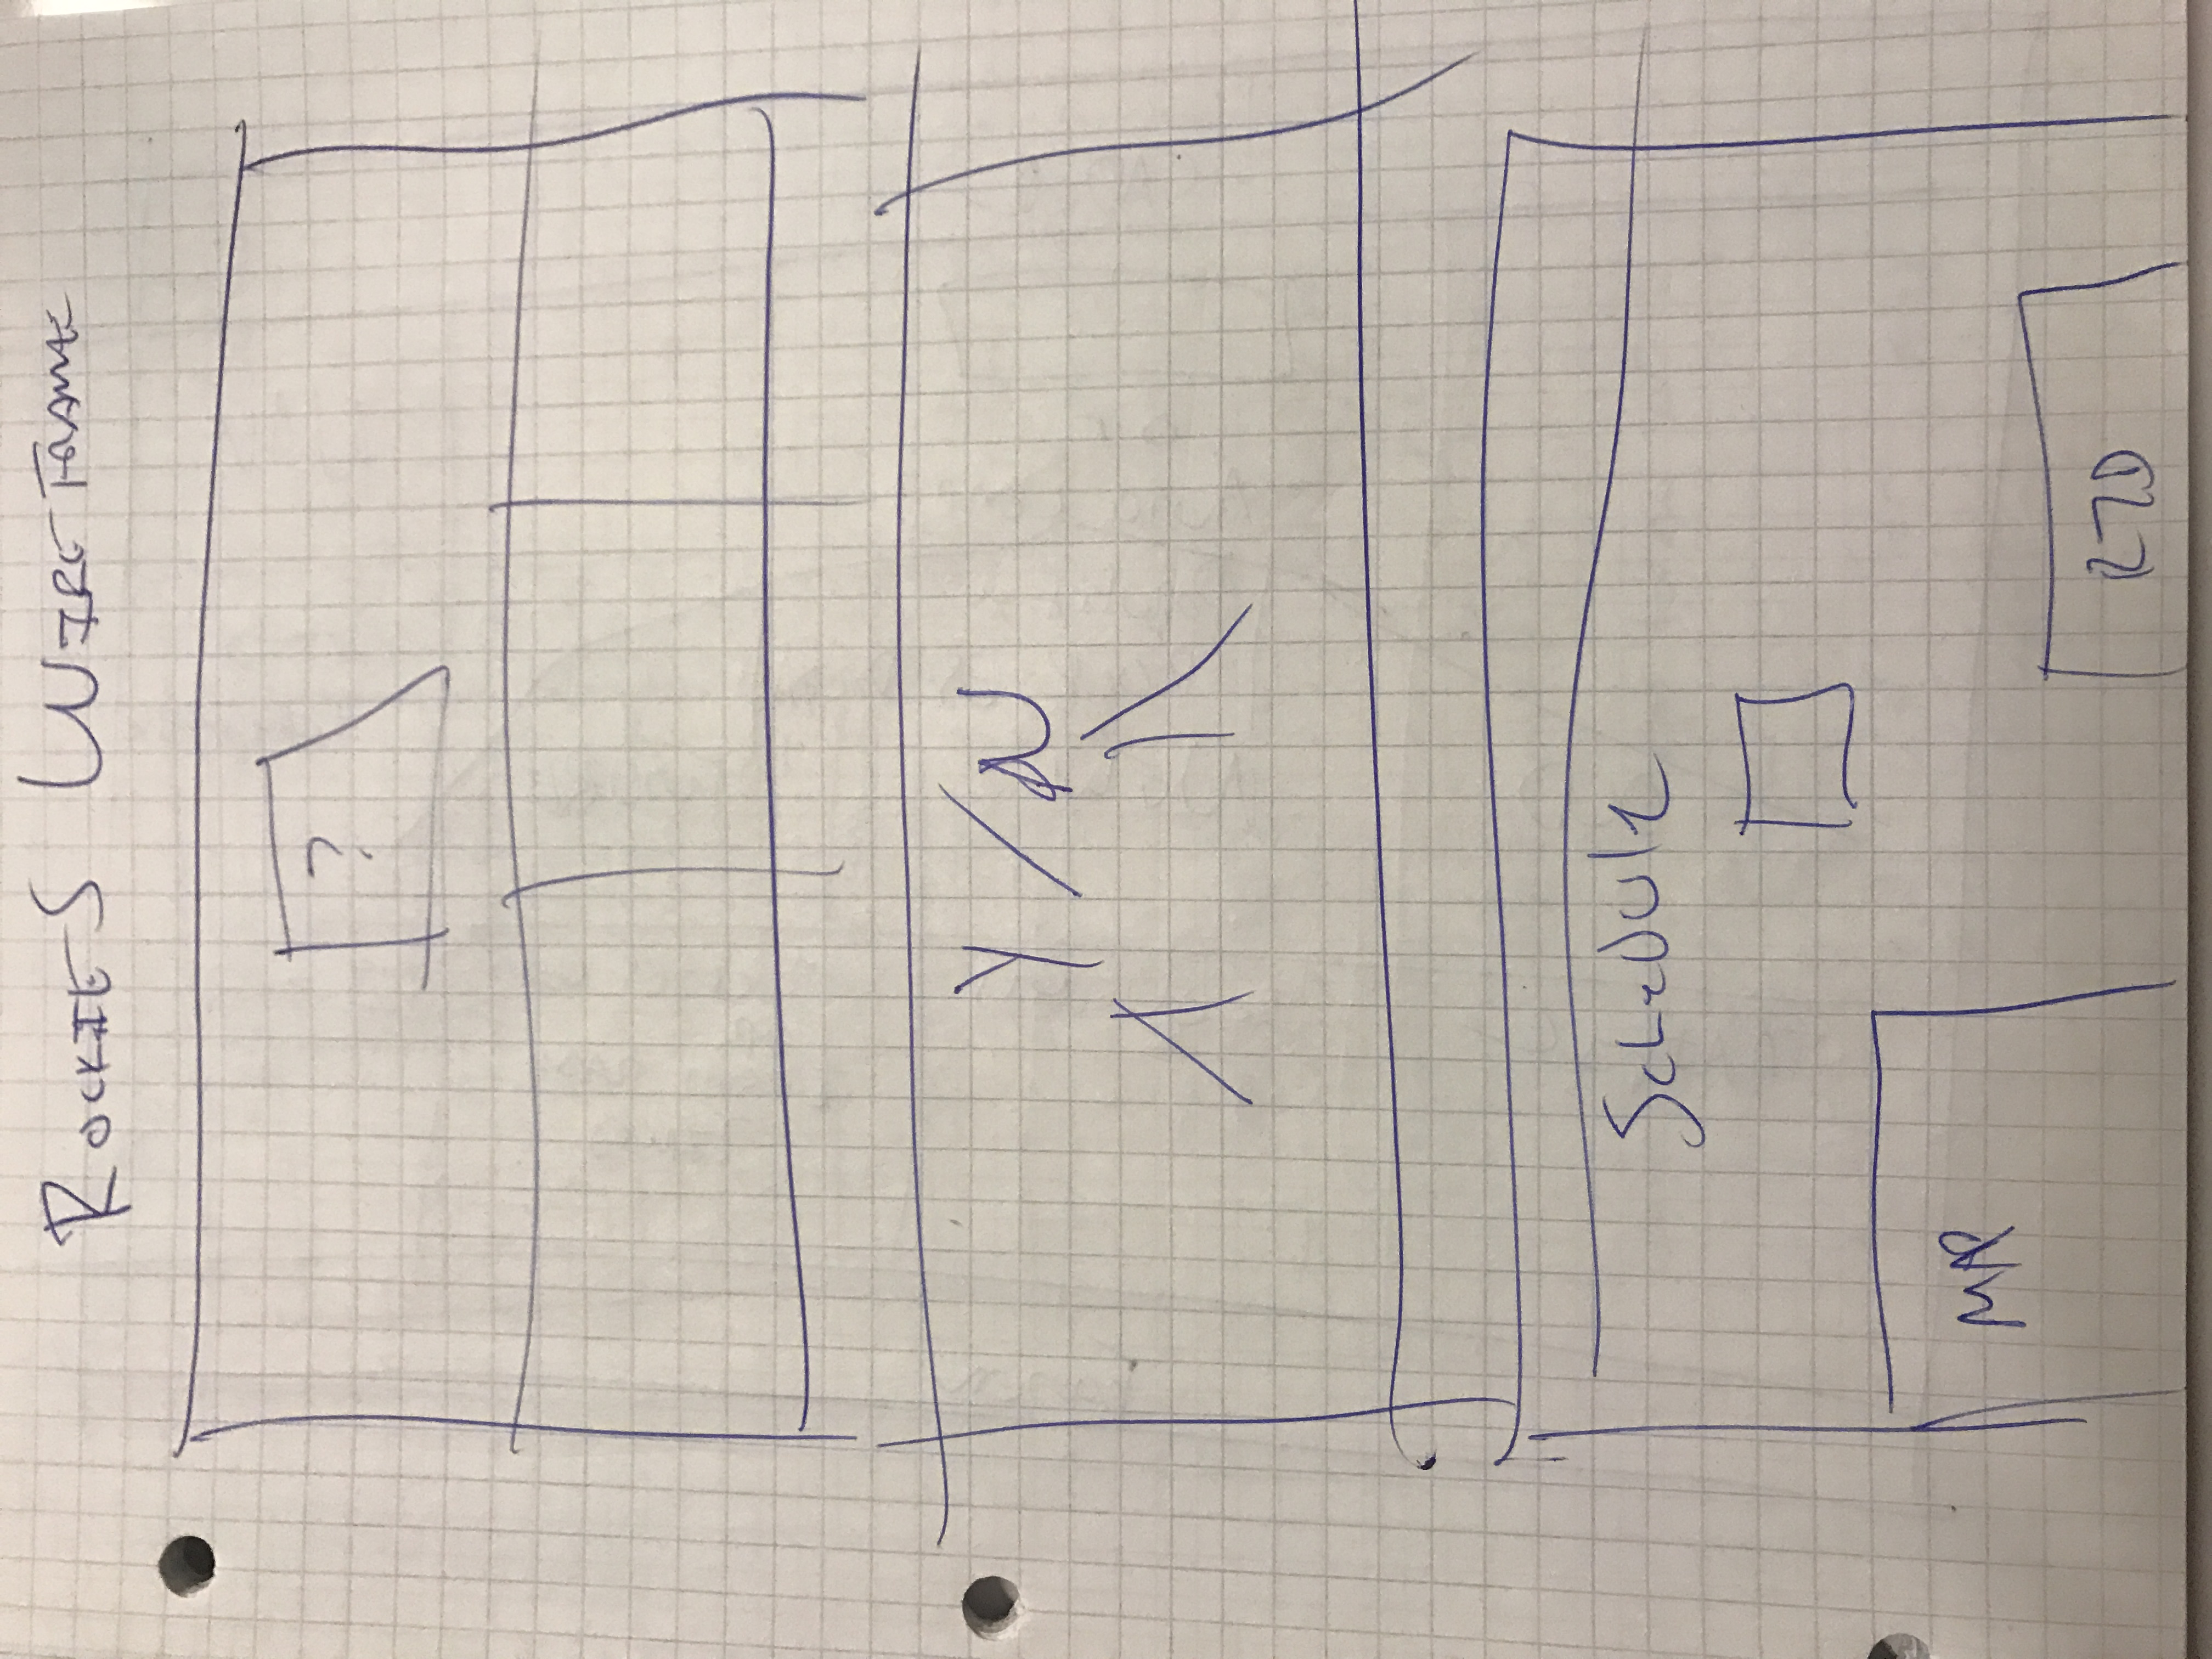 ROCKIES WIREFRAME
?
Y/N
Schedule
MAP
RTD